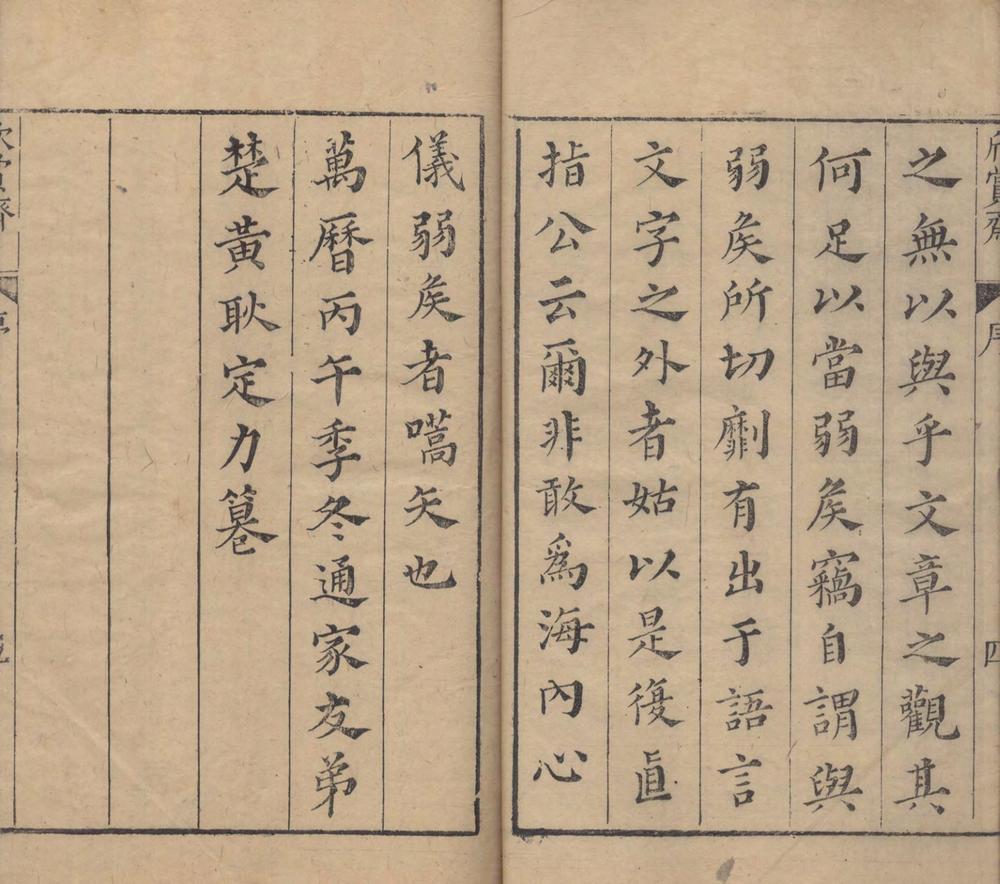 欣賞齋
序
四
之無以與乎文章之觀其
何足以當弱矦竊自謂與
弱矦所切劘有出于語言
文字之外者姑以是復眞
指公云爾非敢為海內心
儀弱矦者嚆矢也
萬曆丙午季冬通家友弟
楚黃耿定力篹